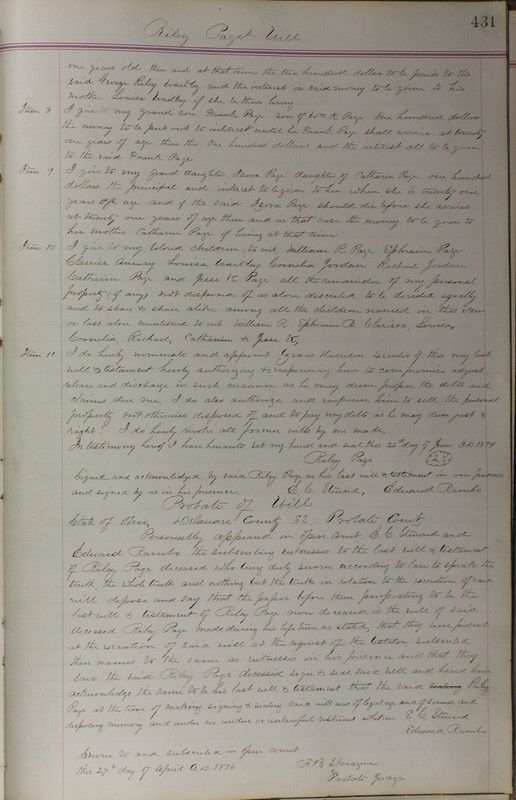 431
Riley Page Will
one years old then and at that time the two hundred dollars to be paid to the
said George Riley and the interest on said money to be given to his
mother Louisa if she be then living
Item 8 I give to my grand son Frank Page son of Wm R Page One hundred dollars
the money to be put out to interest until he Frank Page shall arrive at twenty
one years of age then the One hundred dollars and the interest all to be given
to the said Frank Page
Item 9 I give to my Grand daughter Isora Page daughter of Catharin Page one hundred
dollars the principal and interest to be given to her when she is twenty one
years of age and if the said Isora Page should die before she arrives
at twenty one years of age then and in that case the money to be given to
her mother Catharin Page if living at that time
Item 10 I give to my children, to wit, William R. Page Ephraim Page
Clarissa Louisa Cornelia Jordan Rachael Jordan
Catharin Page and Jesse K Page all the remainder of my personal
property (if any) not disposed of as above described to be divided equally
and to share & share alike among all the children named in this item
or last above mentioned to wit William R. Ephraim B. Clarissa, Louisa,
Cornelia, Rachael, Catharin & Jesse K,
Item 11 I do hereby nominate and appoint Harrison executor of this my last
will & testament hereby authorizing & empowering him to compromise adjust
release and discharge in such manner as he may deem proper the debts and
claims due me, I do also authorize and empower him to sell the personal
property not otherwise disposed of and to pay my debts as he may deem just &
right. I do hereby revoke all former wills by me made,
In testimony hereof I have hereunto set my hand and seal this 22d day of June A.D 1874
Riley Page
Signed and acknowledged by said Riley Page as his last will & testament in our presence
and signed by us in his presence. E. C. Steward, Edward Rambo
Probate of Will
State of Ohio, Delaware County SS. Probate Court
Personally appeared in open court E. C. Steward and
Edward Rambo the subscribing witnesses to the last will & testament
of Riley Page deceased who being duly sworn according to law to speak the
truth, the whole truth and nothing but the truth in relation to the execution of said
will, depose and say that the paper before them purporting to be the
last will & testament of Riley Page now deceased is the will of said
deceased Riley Page made during his lifetime as stated, that they were present
at the execution of said will at the request of the testator subscribed
their names to the same as witnesses in his presence and that they
saw the said Riley Page deceased sign & seal said will and heard him
acknowledge the same to be his last will & testament that the said Riley
Page at the time of making signing & sealing said will was of legal age and of sound and
disposing memory and under no undue or unlawful restraint whatever E. C. Steward
Edward Rambo
Sworn to and subscribed in open court
this 27th day of April A.D 1876 F B Sprague
Probate Judge